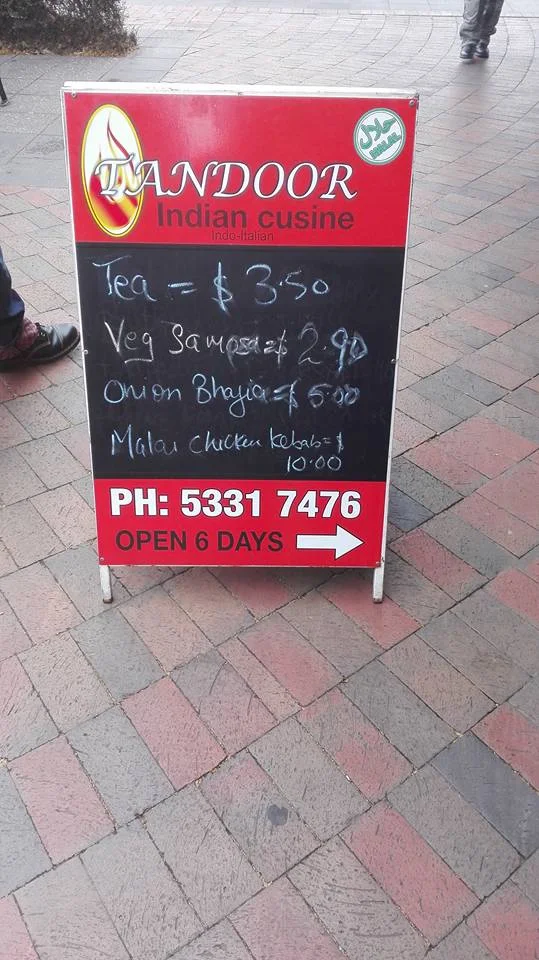 حلال
HALAL
TANDOOR
Indian cusine
Indo-Italian
Tea = $ 3.50
Veg Samosa = $ 2.90
Onion Bhajia = $ 5.00
Malai Chicken Kebab = $
10.00
PH: 5331 7476
OPEN 6 DAYS